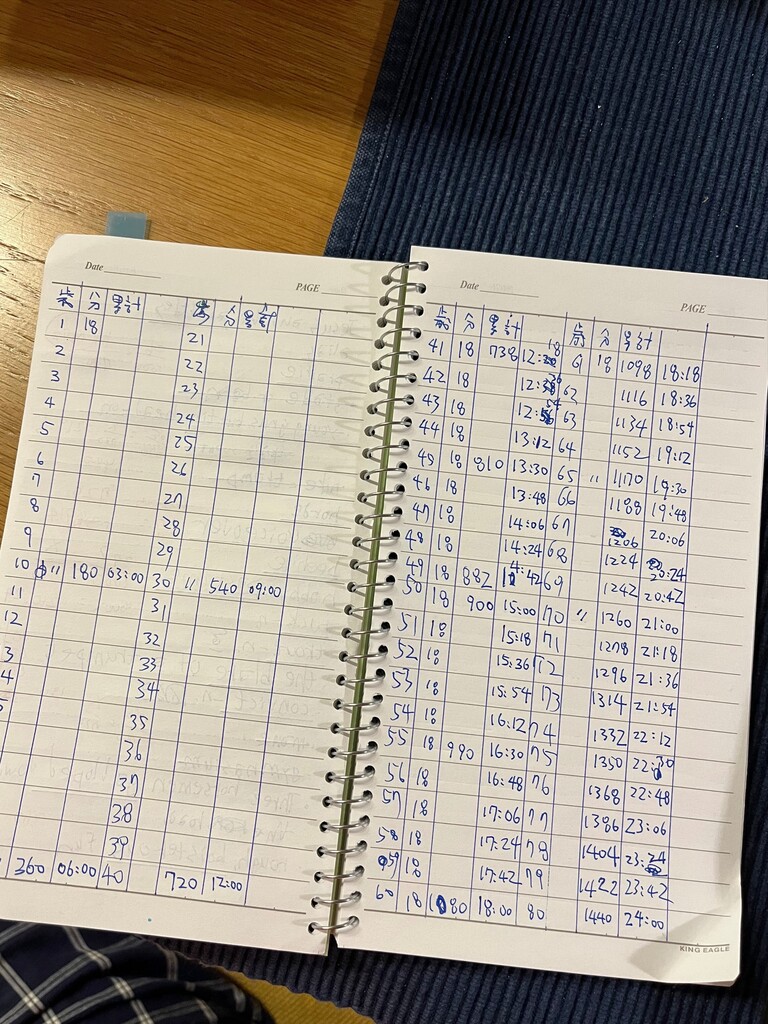 Date
PAGE
分 累計 分 累計
1 18 21
2 22
3 23
4 24
5 25
6 26
7 27
8 28
9 29
10 " 180 03:00 30 " 540 09:00
11 31
12 32
3 33
4 34
35
36
37
38
39
360 06:00 40 720 12:00
Date
PAGE
分 累計 分 累計
41 18 738 12:18 61 18 1098 18:18
42 18 12:36 62 1116 18:36
43 18 12:54 63 1134 18:54
44 18 13:12 64 1152 19:12
45 18 810 13:30 65 " 1170 19:30
46 18 13:48 66 1188 19:48
47 18 14:06 67 1206 20:06
48 18 14:24 68 1224 20:24
49 18 882 14:42 69 1242 20:42
50 18 900 15:00 70 " 1260 21:00
51 18 15:18 71 1278 21:18
52 18 15:36 72 1296 21:36
53 18 15:54 73 1314 21:54
54 18 16:12 74 1332 22:12
55 18 990 16:30 75 1350 22:30
56 18 16:48 76 1368 22:48
57 18 17:06 77 1386 23:06
58 18 17:24 78 1404 23:24
59 18 17:42 79 1422 23:42
60 18 1080 18:00 80 1440 24:00
KING EAGLE